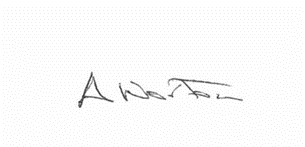 A Norton